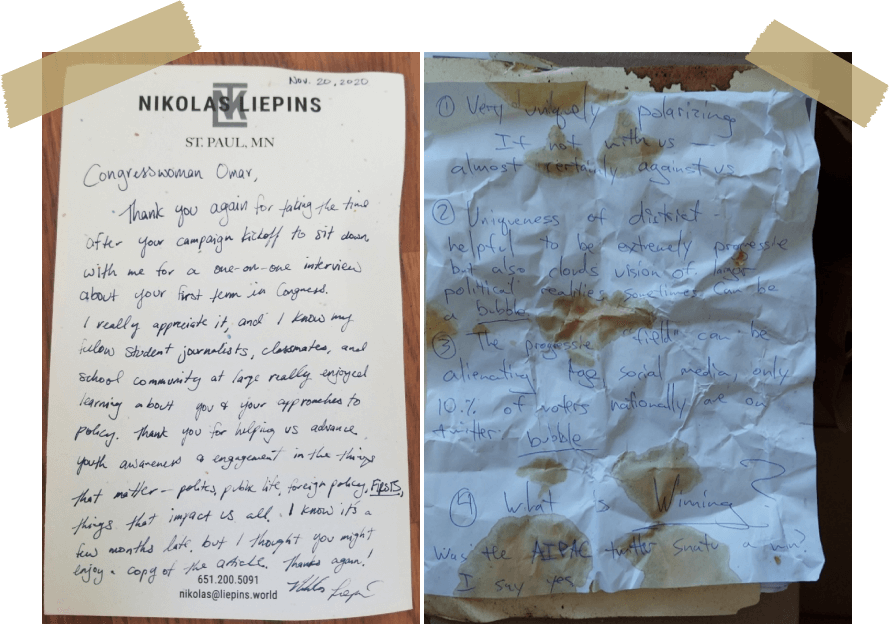 Nov. 20, 2020
NIKOLAS LIEPINS
ST. PAUL, MN
Congresswoman Omar,
Thank you again for taking the time
after your campaign kickoff to sit down
with me for a one-on-one interview
about your first term in Congress.
I really appreciate it, and I know my
fellow student journalists, classmates, and
school community at large really enjoyed
learning about you & your approaches to
policy. Thank you for helping us advance
youth awareness & engagement in the things
that matter - politics, public life, foreign policy, FIRSTS,
things that impact us all. I know it's a
few months late, but I thought you might
enjoy a copy of the article. Thanks again!
651.200.5091
nikolas@liepins.world
Nikolas Liepins
① Very uniquely polarizing
If not with us —
almost certainly against us
② Uniqueness of district -
helpful to be extremely progressive
but also clouds vision of larger
political realities sometimes. Can be
a bubble
③ The progressive "field" can be
alienating social media, only
10% of voters nationally are on
twitter. bubble
④ What is Winning ?
Was the AIPAC twitter a win?
I say yes